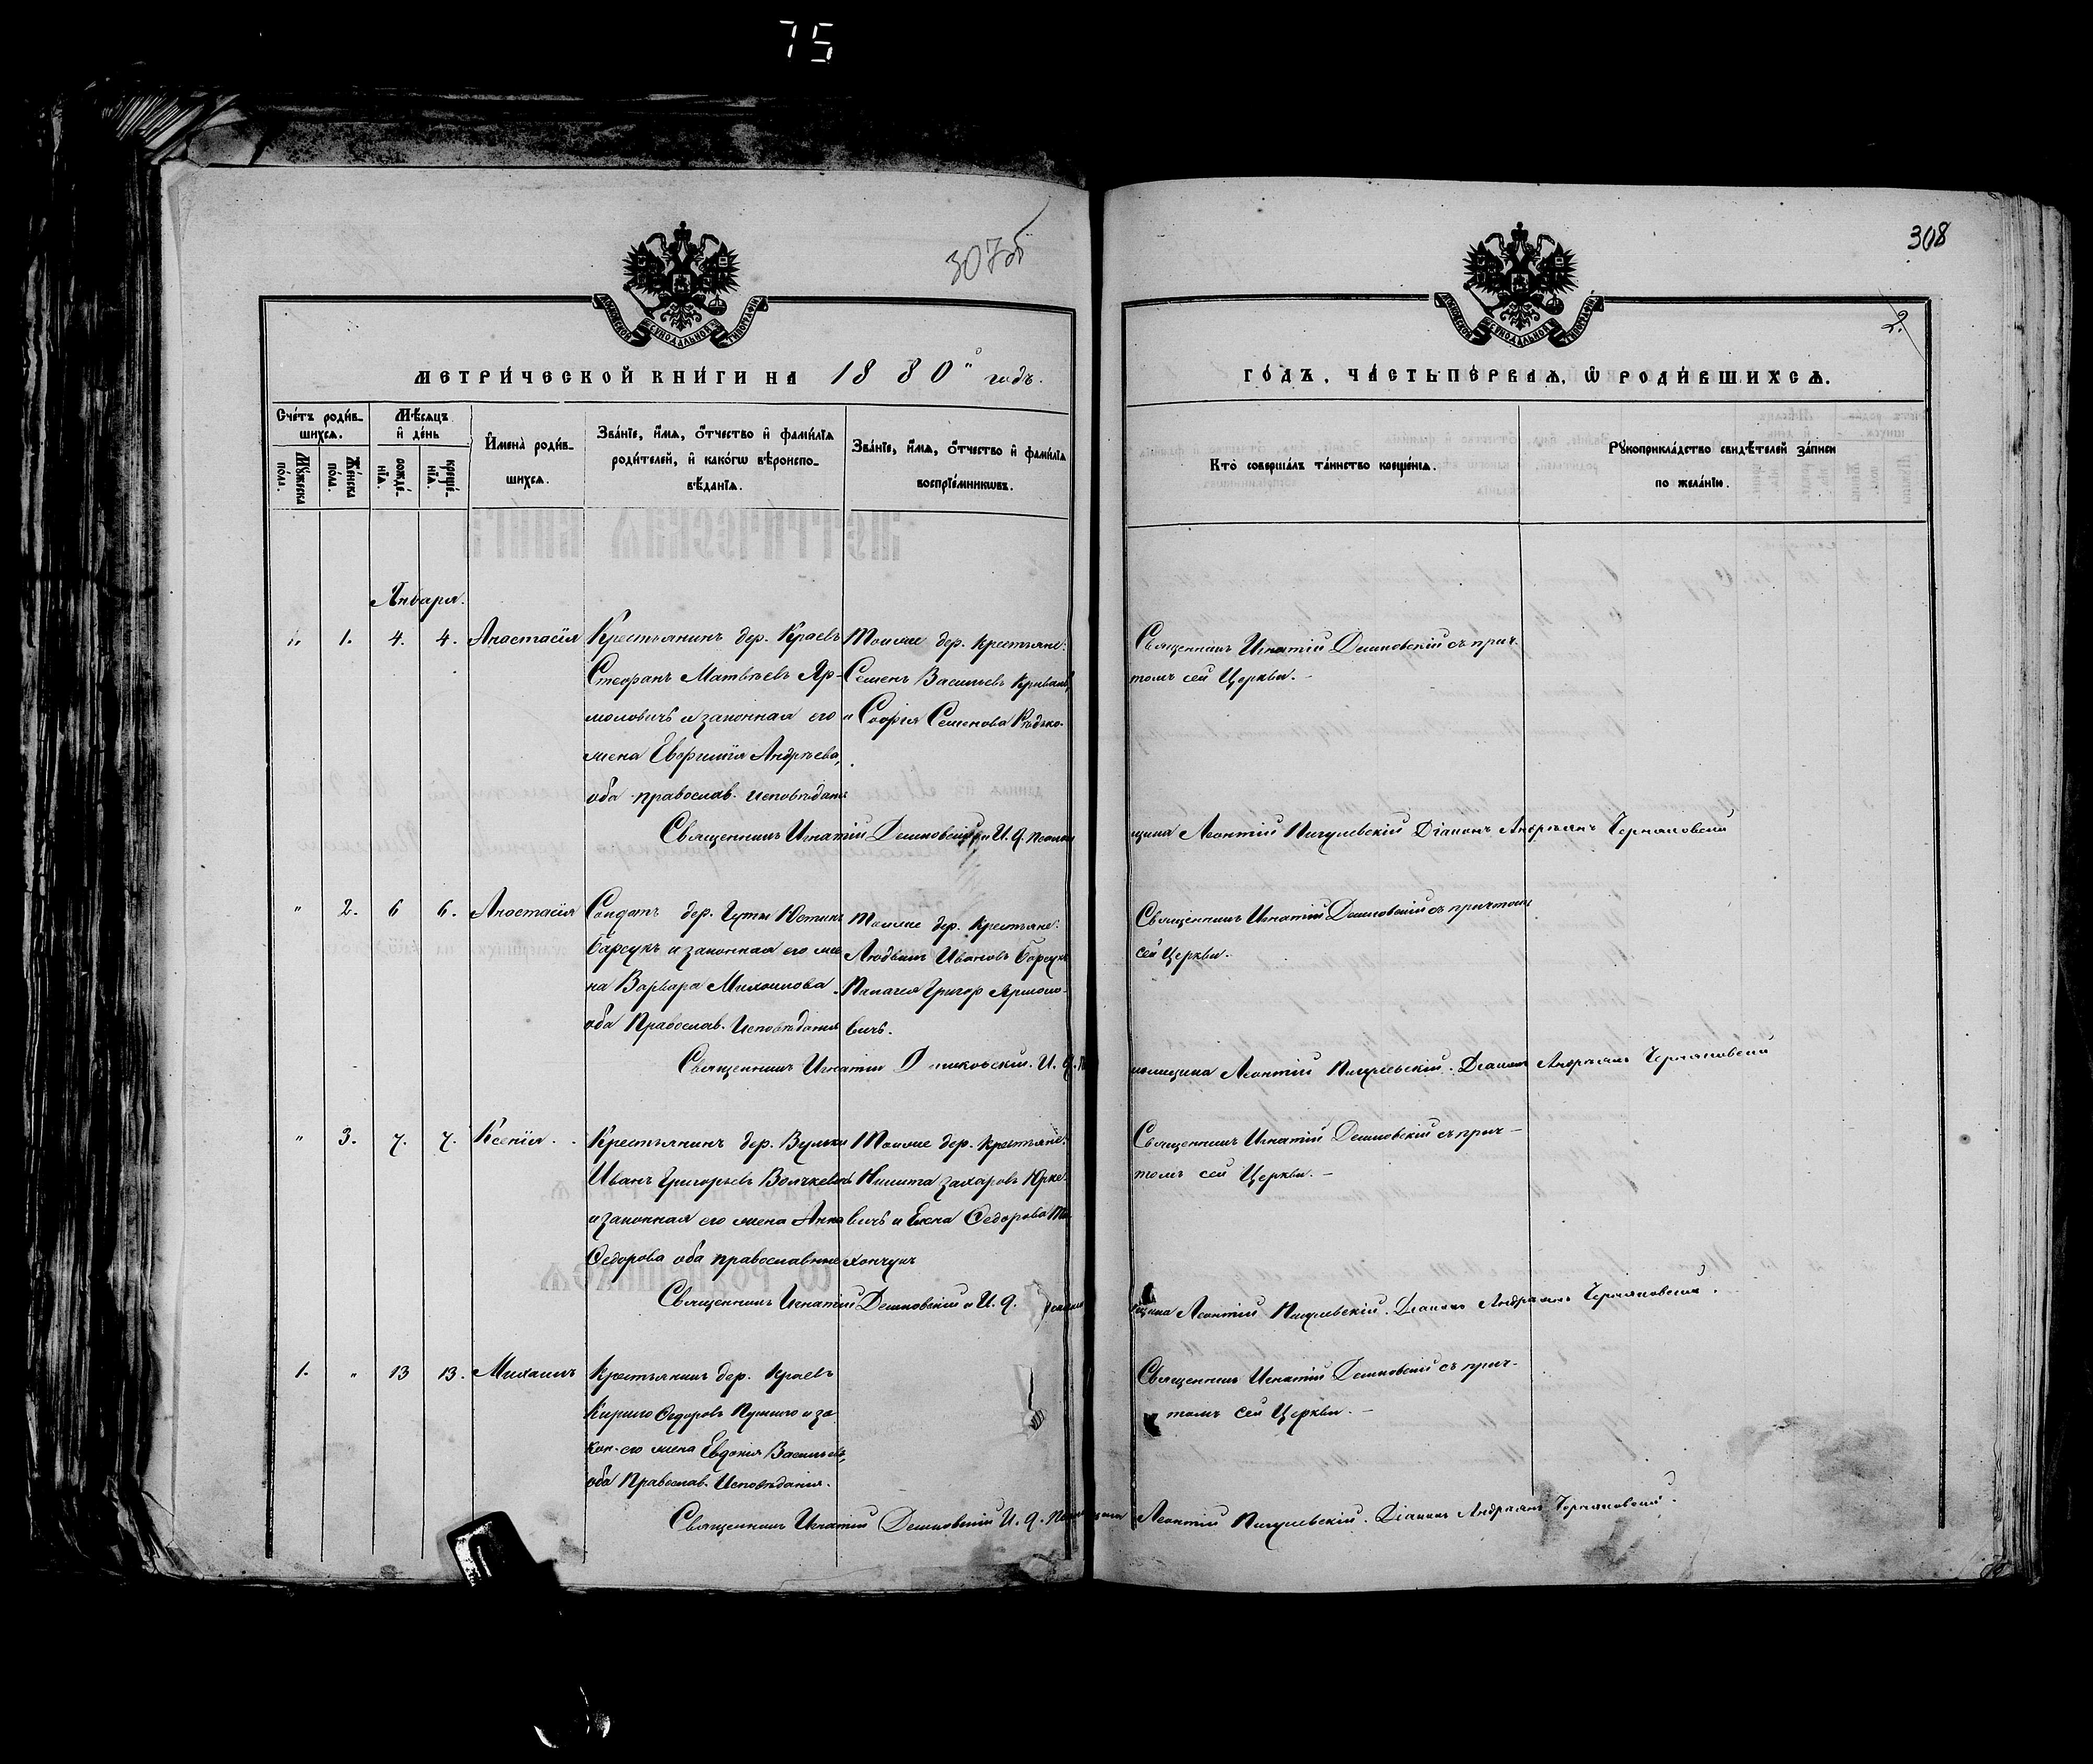 75
307об
308
2.
МОСКОВСКОЙ СѴНОДАЛЬНОЙ ТИПОГРАФІИ
МОСКОВСКОЙ СѴНОДАЛЬНОЙ ТИПОГРАФІИ
МЕТРИ́ЧЕСКОЙ КНИ́ГИ НА 1880й годъ.
ГО́ДЪ, ЧА́СТЬ ПЕ́РВАѦ, Ѡ҆ РОДИ́ВШИХСѦ.
Сче́тъ роди́в-
шихсѧ.
Мꙋ́жеска по́ла.
Же́нска по́ла.
Мѣ́сѧцъ
и҆ де́нь
рожде́-
нїѧ.
креще́-
нїѧ.
И҆мена̀ роди́в-
шихсѧ.
Зва́нїе, и҆́мѧ, ѻ҆́тчество и҆ фами́лїѧ
роди́телей, и҆ како́гѡ вѣроиспо-
вѣ́данїѧ.
Зва́нїе, и҆́мѧ, ѻ҆́тчество и҆ фами́лїѧ
воспрїе́мникѡвъ.
Кто̀ соверша́лъ та́инство креще́нїѧ.
Рꙋкоприкла́дство свидѣ́телей за́писи
по жела́нїю.
Января.
" 1. 4. 4. Анастасія
Крестьянинъ дер. Краевъ
Стефанъ Матвѣевъ Яр-
моловичъ и законная его
жена Евфимія Андреева,
оба православ. исповѣданія
Тоиже дер. крестьяне:
Семенъ Васильевъ
и Софія Семенова Рѣдько.
Священникъ Игнатій Демновскій съ прич-
томъ сей Церкви.
Священникъ Игнатій Демновскій и И. д. псалом
щика Леонтій Пигулевскій Діаконъ Андріанъ Черняковскій
" 2. 6 6. Анастасія
Солдатъ дер. Гуты Юстинъ
Барсукъ и законная его же
на Варвара Михаилова
оба Православ. Исповѣданія
Тоиже дер. крестьяне:
Людвигъ Ивановъ Барсукъ
Пелагея Григор Ярмоло-
вичъ.
Священникъ Игнатій Демновскій съ причтомъ
сей Церкви.
Священникъ Игнатій Демновскій. И. д. п
ломщика Леонтій Пигулевскій. Діаконъ Андріанъ Черняковскій
" 3. 7. 7. Ксенія.
Крестьянинъ дер. Вульки
Иванъ Григорьевъ Волчкевичъ
и законная его жена Анна
Федорова оба православные
Тоиже дер. крестьяне:
Никита Захаровъ Юрке-
вичъ и Елена Федорова Ти-
хончукъ
Священникъ Игнатій Демновскій съ прич-
томъ сей Церкви.
Священникъ Игнатій Демновскій и И. д. псалом
щика Леонтій Пигулевскій. Діаконъ Андріанъ Черняковскій.
1. " 13 13. Михаилъ
Крестьянинъ дер. Краевъ
Кирило Федоровъ и за
кон. его жена Евдокія Васильева,
оба Православ. Исповѣданія.
Священникъ Игнатій Демновскій съ прич-
томъ сей Церкви.
Священникъ Игнатій Демновскій И. д. Псаломщика Леонтій Пигулевскій. Діаконъ Андріанъ Черняковскій.